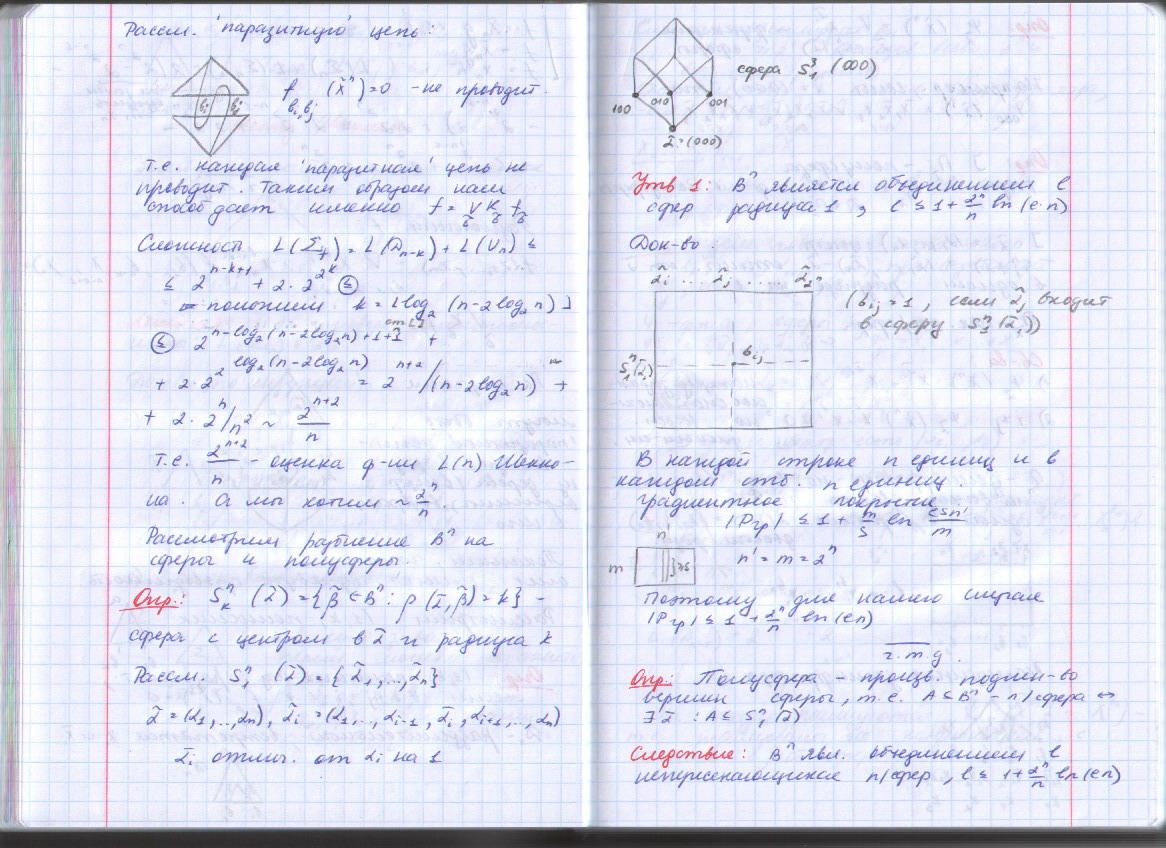 Рассм. 'паразитную' цепь:
f_{b_i,b_j} (x̃ⁿ)=0 - не проводит.
b_i b_j
т.е. каждая 'паразитная' цепь не
проводит. Таким образом наш
способ дает именно f = ∨_б K_б f_б
Сложность L(Σ_f) = L(D_{n-k}) + L(U_n) ≤
≤ 2^{n-k+1} + 2·2^{2^k} ≤
положим k = ⌊log₂ (n-2log₂n)⌋
≤ 2^{n-log₂(n-2log₂n)+1+1} +
от ⌊⌋
+ 2·2^{2^{log₂(n-2log₂n)}} = 2^{n+2}/(n-2log₂n) +
+ 2·2ⁿ/n² ~ 2^{n+2}/n
т.е. 2^{n+2}/n - оценка ф-ии L(n) Шенно-
на. А мы хотим ~ 2ⁿ/n.
Рассмотрим разбиение Bⁿ на
сферы и полусферы.
Опр.: Sⁿ_k (α̃) = {β̃ ∈ Bⁿ: ρ(α̃,β̃) = k} -
сфера с центром в α̃ и радиуса k
Рассм. Sⁿ₁ (α̃) = {α̃₁,...,α̃ₙ}
α̃ = (α₁,...,αₙ), α̃ᵢ = (α₁,...,αᵢ₋₁, ᾱᵢ, αᵢ₊₁,...,αₙ)
α̃ᵢ отлич. от αᵢ на 1
сфера S³₁ (000)
100 010 001
α̃=(000)
Утв 1: Bⁿ является объединением l
сфер радиуса 1, l ≤ 1+ 2ⁿ/n ln(e·n)
Док-во.
α̃ᵢ ... α̃ⱼ ... α̃_{2ⁿ}
(b_{ij}=1, если α̃ⱼ входит
в сферу Sⁿ₁(α̃ᵢ))
Sⁿ₁(α̃ᵢ) b_{ij}
В каждой строке n единиц и в
каждом стб. n единиц.
градиентное покрытие
|P_{гр}| ≤ 1 + m/s ln esn'/m
n'
m ≥s n' = m = 2ⁿ
Поэтому для нашего случая
|P_{гр}| ≤ 1 + 2ⁿ/n ln(en)
ч.т.д.
Опр: Полусфера - произв. подмн-во
вершин сферы, т.е. A⊆Bⁿ - п/сфера ↔
∃α̃ : A⊆ Sⁿ₁(α̃)
Следствие: Bⁿ явл. объединением l
непересекающихся п/сфер, l ≤ 1+ 2ⁿ/n ln(en)